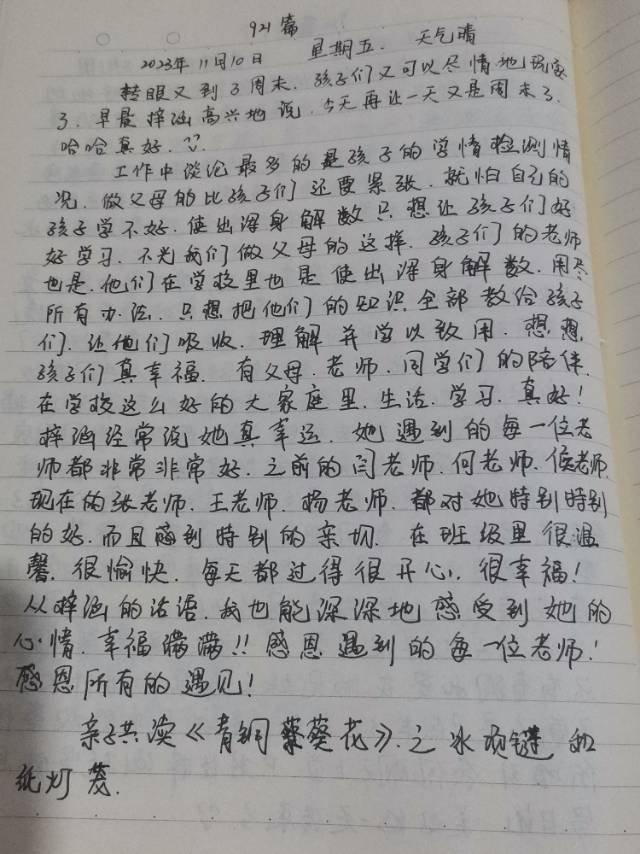 921篇
2023年11月10日 星期五. 天气晴
转眼又到了周末. 孩子们又可以尽情地玩耍
了. 早晨梓涵高兴地说. 今天再让一天又是周末了.
哈哈真好.
工作中谈论最多的是孩子的学情检测情
况. 做父母的比孩子们还要紧张. 就怕自己的
孩子学不好. 使出浑身解数只想让孩子们好
好学习. 不光我们做父母的这样. 孩子们的老师
也是. 他们在学校里也是使出浑身解数. 用尽
所有办法. 只想把他们的知识全部教给孩子
们. 让他们吸收. 理解并学以致用. 想想.
孩子们真幸福. 有父母. 老师. 同学们的陪伴.
在学校这么好的大家庭里. 生活. 学习. 真好!
梓涵经常说她真幸运. 她遇到的每一位老
师都非常非常好. 之前的闫老师. 何老师. 侯老师.
现在的张老师. 王老师. 杨老师. 都对她特别特别
的好. 而且感到特别的亲切. 在班级里很温
馨. 很愉快. 每天都过得很开心. 很幸福!
从梓涵的话语. 我也能深深地感受到她的
心情. 幸福满满!! 感恩遇到的每一位老师!
感恩所有的遇见!
亲子共读《青铜葵花》. 之冰项链和
纸灯笼.